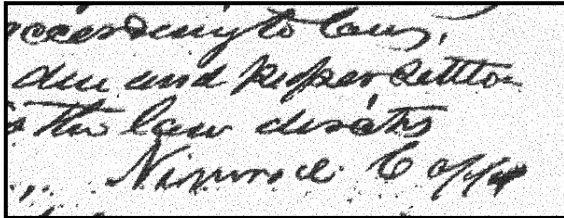 according to law,
due and proper settlem
as the law directs
Nimrod Copp